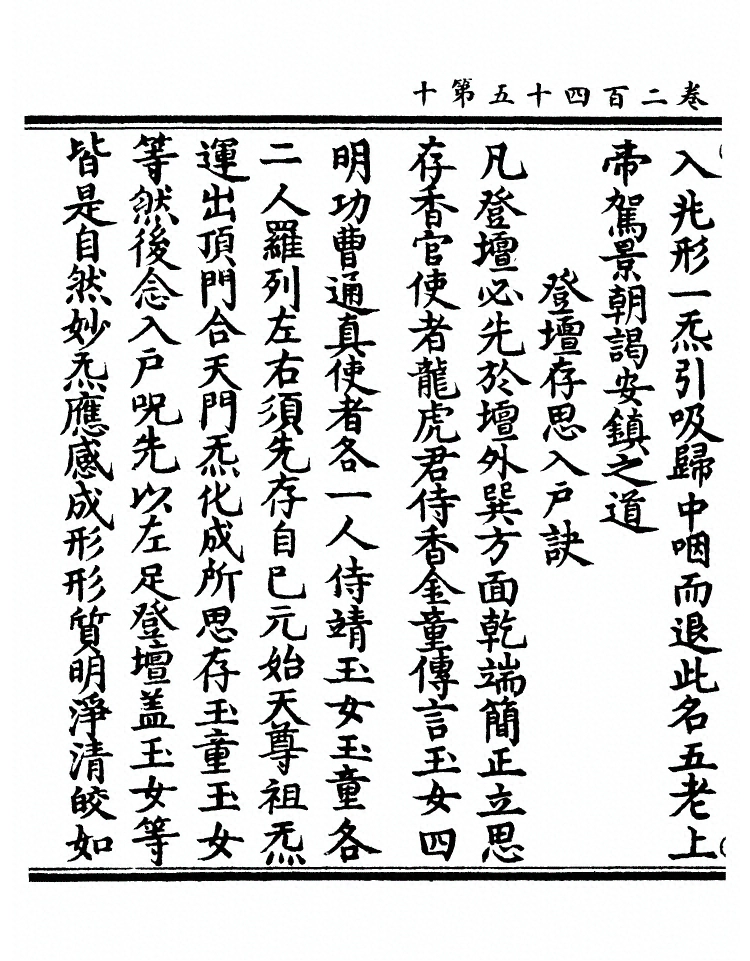 卷二百四十五第十
入兆形一炁引吸歸中咽而退此名五老上
帝駕景朝謁安鎮之道
登壇存思入戶訣
凡登壇必先於壇外巽方面乾端簡正立思
存香官使者龍虎君侍香金童傳言玉女四
明功曹通真使者各一人侍靖玉女玉童各
二人羅列左右須先存自已元始天尊祖炁
運出頂門合天門炁化成所思存玉童玉女
等然後念入戶呪先以左足登壇盖玉女等
皆是自然妙炁應感成形形質明淨清皎如